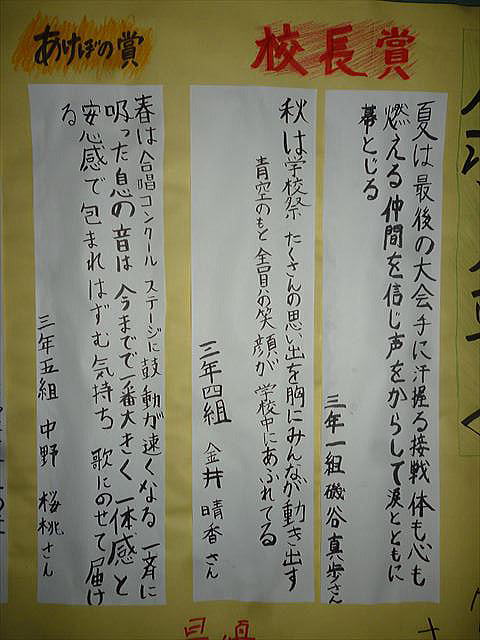 校長賞
夏は最後の大会手に汗握る接戦体も心も
燃える仲間を信じ声をからして涙とともに
幕とじる
三年一組 磯谷 真歩さん
秋は学校祭 たくさんの思い出を胸にみんなが動き出す
青空のもと全員の笑顔が 学校中にあふれてる
三年四組 金井 晴香さん
あけぼの賞
春は合唱コンクール ステージに鼓動が速くなる 一斉に
吸った息の音は 今までで一番大きく 一体感と
安心感で包まれはずむ気持ち 歌にのせて届け
る
三年五組 中野 桜桃さん